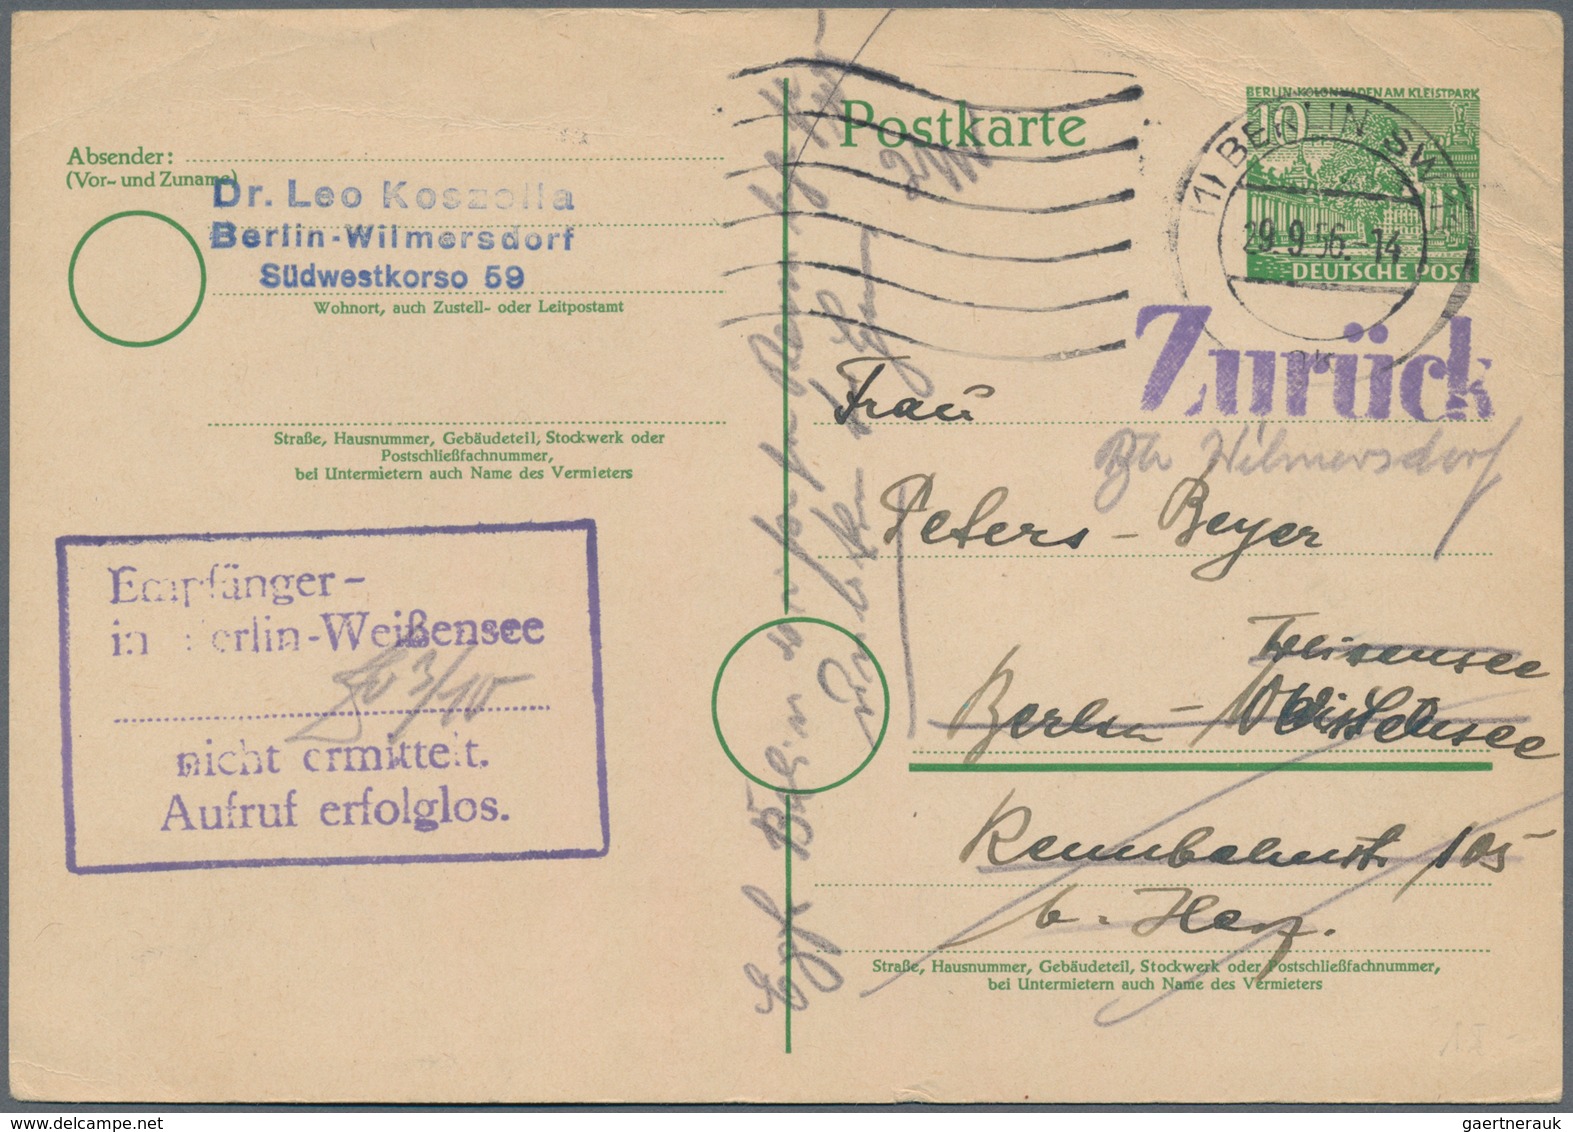 Postkarte
BERLIN-KOLONNADEN AM KLEISTPARK
10
DEUTSCHE POST
(1) BERLIN SW
29.9.56.-14
Absender:
(Vor- und Zuname)
Dr. Leo Koszella
Berlin-Wilmersdorf
Südwestkorso 59
Wohnort, auch Zustell- oder Leitpostamt
Straße, Hausnummer, Gebäudeteil, Stockwerk oder
Postschließfachnummer,
bei Untermietern auch Name des Vermieters
Zurück
Wilmersdorf
Frau
Peters-Beyer
Weissensee
Berlin-Weissensee
Rennbahnstr. 105
b.
Straße, Hausnummer, Gebäudeteil, Stockwerk oder Postschließfachnummer,
bei Untermietern auch Name des Vermieters
Empfänger-
in Berlin-Weißensee
3/10
nicht ermittelt.
Aufruf erfolglos.
gaertnerauk